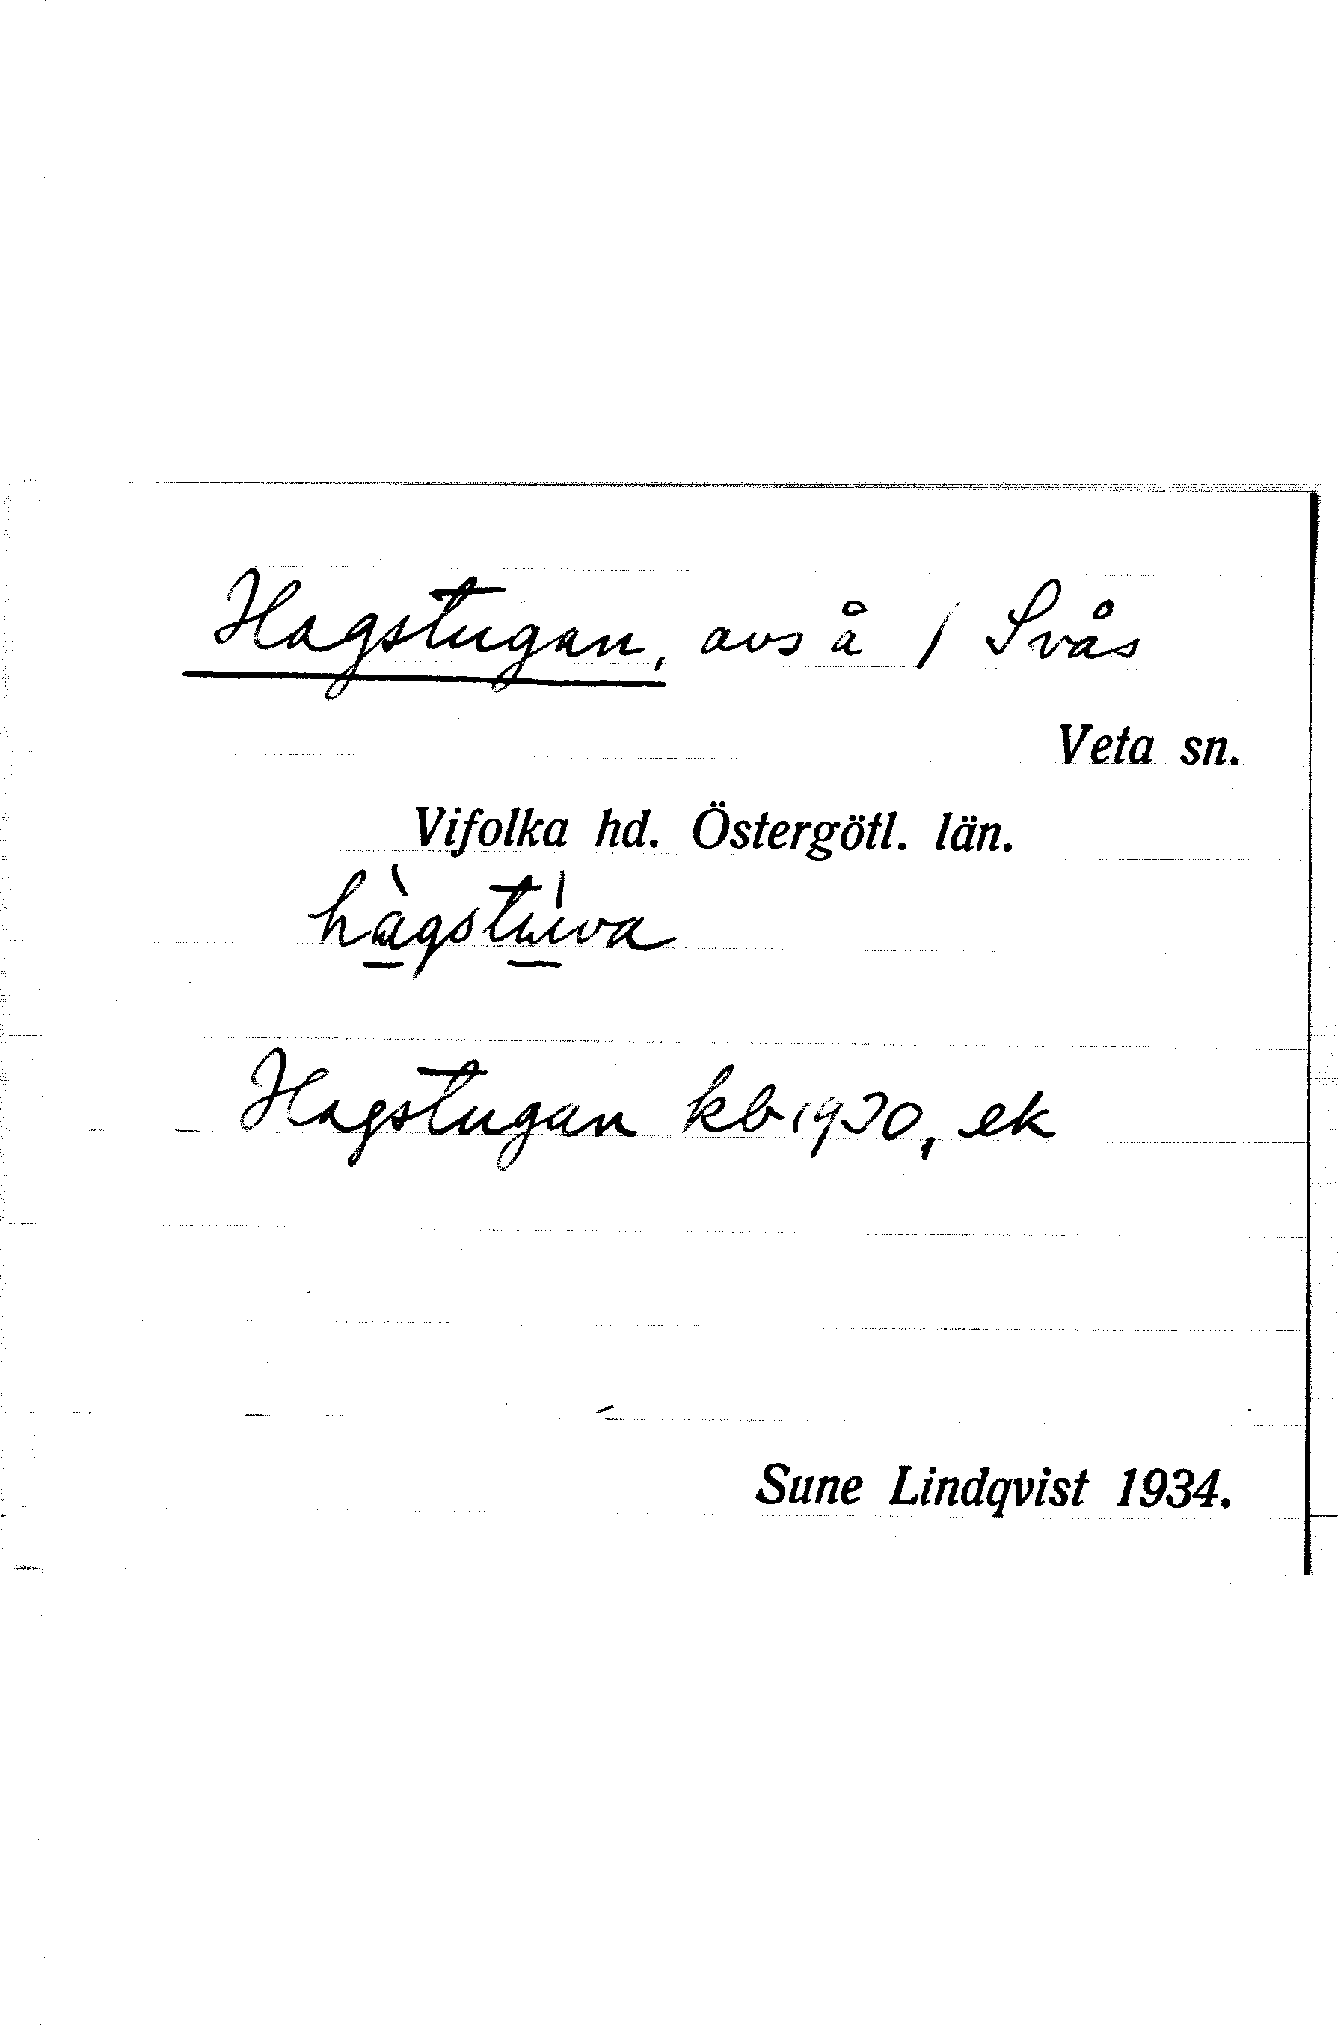 Hagstugan, avs å / Svås
Veta sn.
Vifolka hd. Östergötl. län.
hàgstu̇va
Hagstugan kb 1930, ek
Sune Lindqvist 1934.